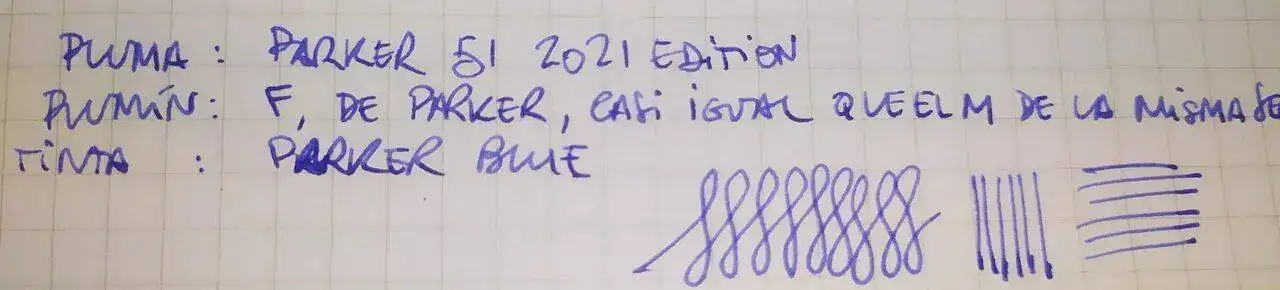 PLUMA : PARKER 51 2021 EDITION
PLUMÍN : F, DE PARKER, CASI IGUAL QUE EL M DE LA MISMA SE
TINTA : PARKER BLUE